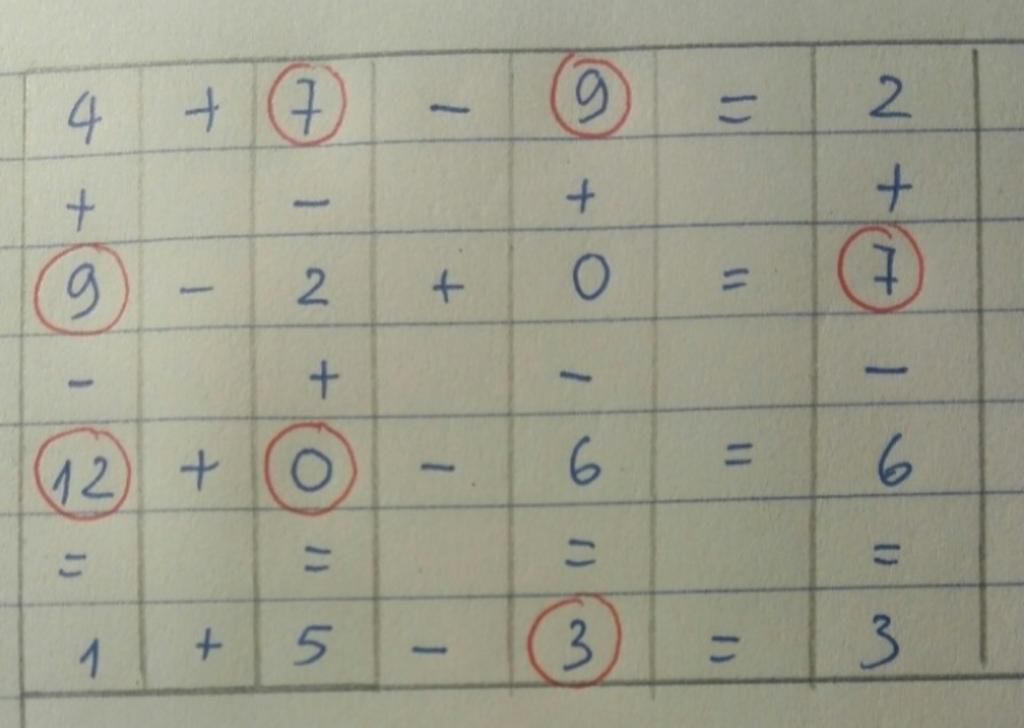 4 + 7 - 9 = 2
+ - + +
9 - 2 + 0 = 7
- + - -
12 + 0 - 6 = 6
= = = =
1 + 5 - 3 = 3